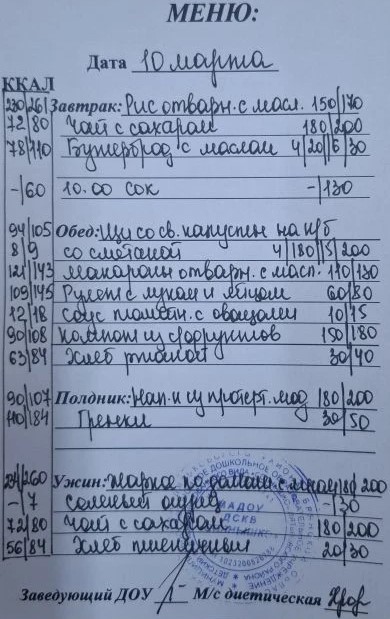 МЕНЮ:
Дата 10 марта
ККАЛ
230/261 Завтрак: Рис отварн. с масл. 150/170
72/80 Чай с сахаром 180/200
78/110 Бутерброд с маслом 4/20//6/30
-/60 10.00 сок -/130
94/105 Обед: Щи со св. капустой на к/б
8/9 со сметаной 4/180//5/200
121/143 макароны отварн. с масл. 110/130
109/145 Рулет с луком и яйцом 60/80
12/18 Соус томатн. с овощами 10/15
90/108 Компот из сухофруктов 150/180
63/84 Хлеб ржаной 30/40
90/107 Полдник: Нап-к из протерт. яг 180/200
110/184 Гренки 30/50
234/260 Ужин: Жаркое по-домаш. с мясом 180/200
-/7 соленый огурец -/30
72/80 Чай с сахаром 180/200
56/84 Хлеб пшеничный 20/30
Заведующий ДОУ М/с диетическая